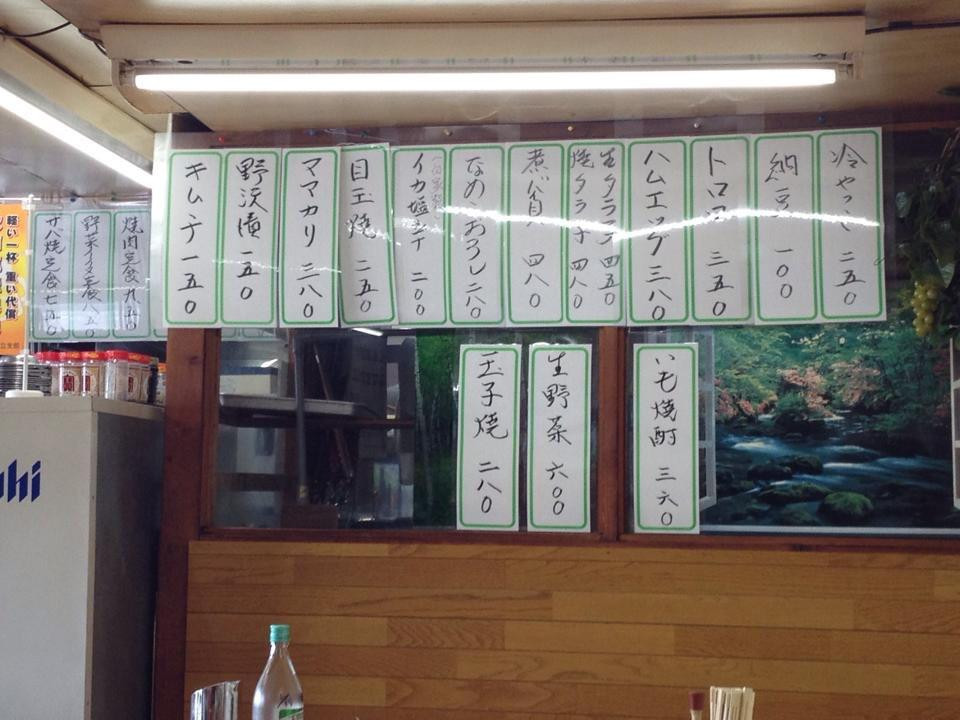 冷やっこ 二五〇
納豆 一〇〇
トロロ 三五〇
ハムエッグ 三八〇
生タラコ 四五〇
焼タラコ 四八〇
煮魚 四八〇
なめこおろし 二八〇
イカ塩辛 二〇〇
目玉焼 二五〇
ママカリ 二八〇
野沢漬 一五〇
キムチ 一五〇
いも焼酎 三六〇
生野菜 六〇〇
玉子焼 二八〇
焼肉定食 九五〇
野菜イタメ定食 八五〇
サバ焼定食 七五〇
軽い一杯 重い代償